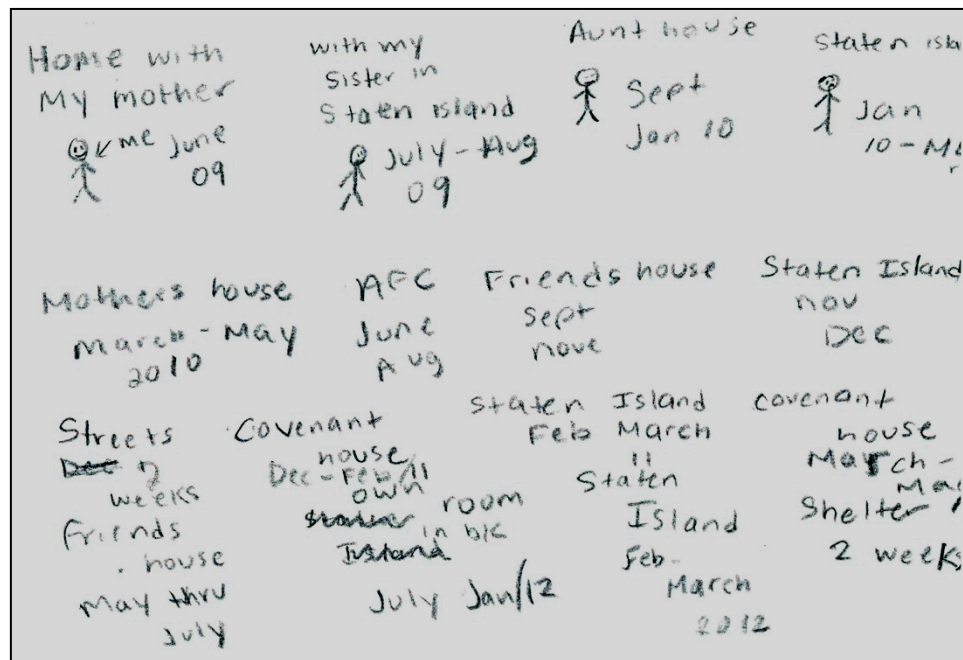 Home with
My mother
me June
09
with my
Sister in
Staten island
July - Aug
09
Aunt house
Sept
Jan 10
Staten isla
Jan
10 -
Mothers house
March - May
2010
AFC
June
Aug
Friends house
Sept
nove
Staten Island
nov
Dec
Streets
Dec 2
weeks
Covenant
house
Dec - Feb/11
Staten Island
Feb March
11
covenant
house
March -
Friends
house
May thru
July
own
room
in b/c
Island
July Jan/12
Staten
Island
Feb -
March
2012
Shelter
2 weeks